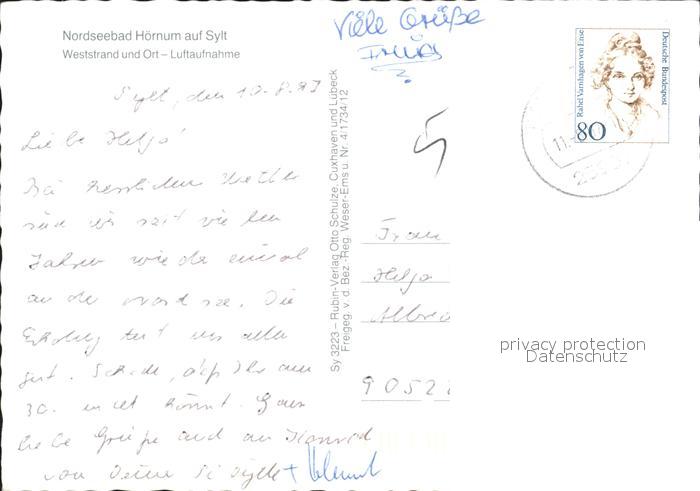 Nordseebad Hörnum auf Sylt
Weststrand und Ort – Luftaufnahme
Viele Grüße
Sylt, den 10.8.93
Liebe Helja!
Bei herrlichem Wetter
sind wir seit vielen
Jahren wieder einmal
an der Nordsee. Die
Erholung tut uns allen
gut. Schade, daß Ihr am
30. nicht könnt. Ganz
liebe Grüße auch an Konrad
von Deiner + Helmut
Sy 3223 – Rubin-Verlag Otto Schulze, Cuxhaven und Lübeck
Freigeg. v. d. Bez.-Reg. Weser-Ems u. Nr. 4/1734/12
Rahel Varnhagen von Ense
Deutsche Bundespost
80
11.
Frau
Helja
9052
privacy protection
Datenschutz